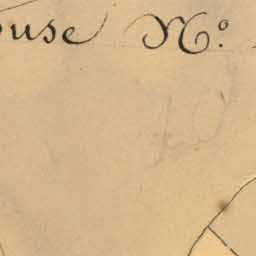 ouse No.